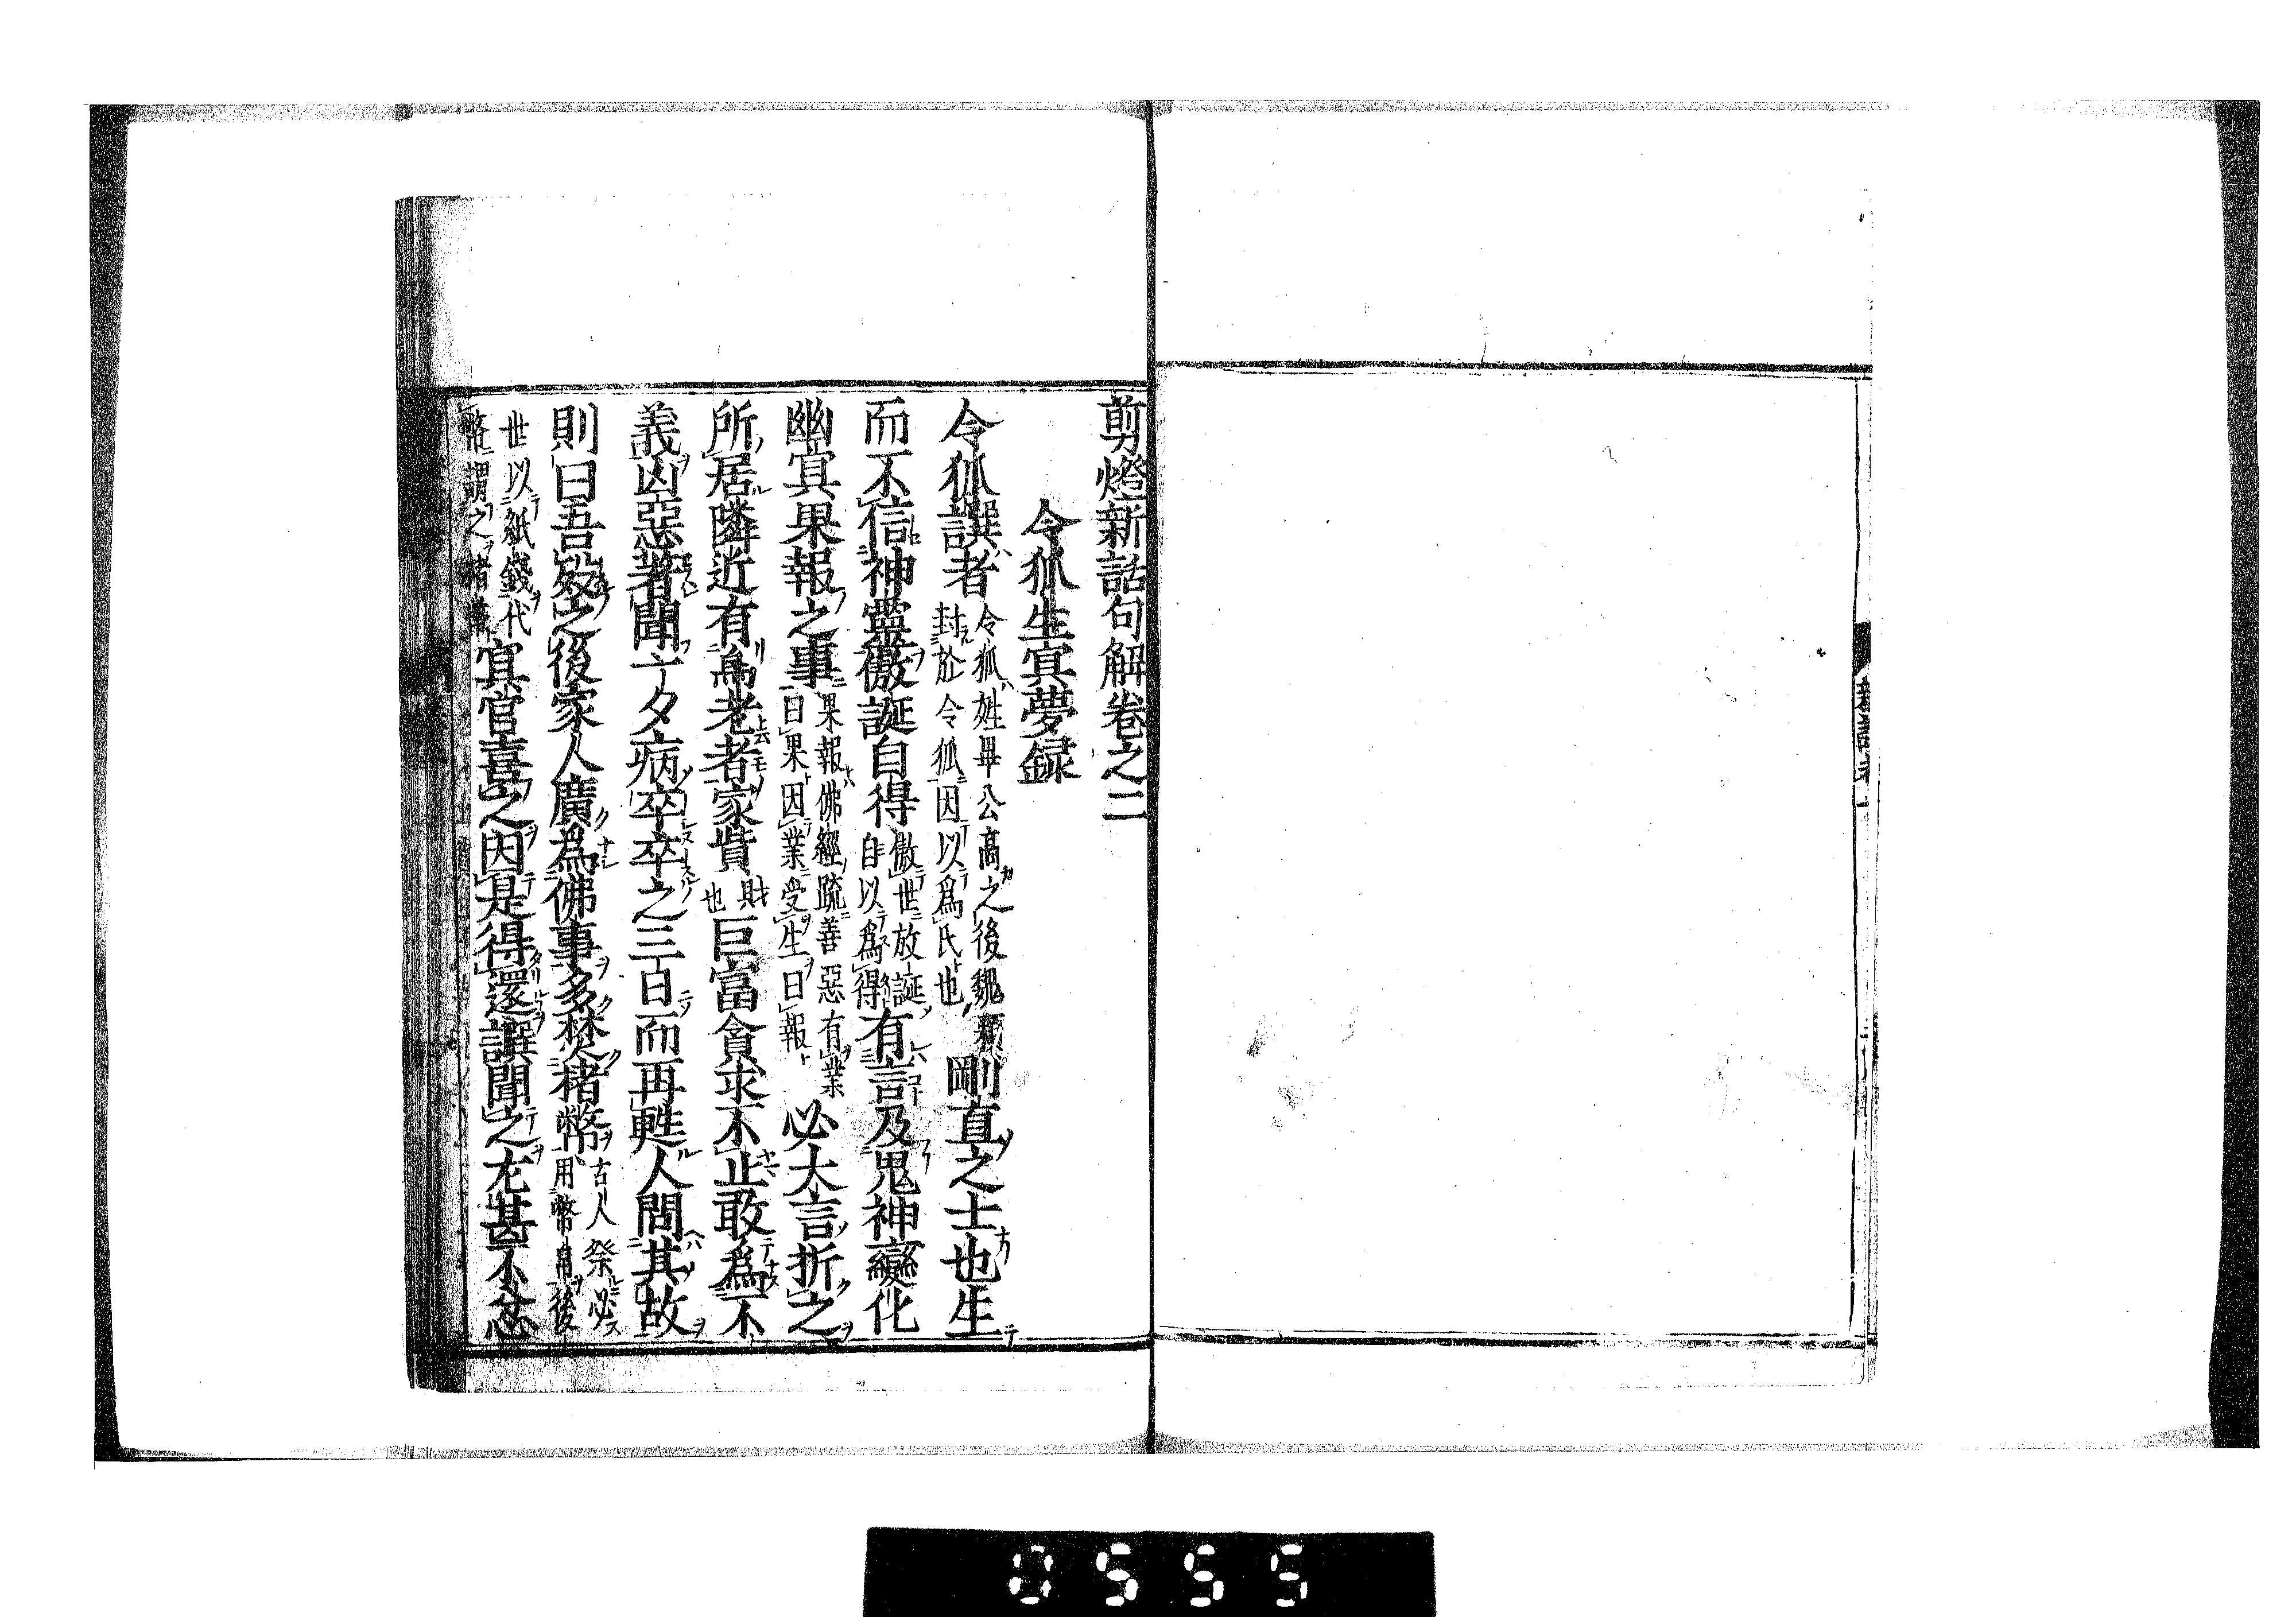 剪燈新話句解卷之二
令狐生冥夢録
令狐譔者令狐姓畢公高之後魏顆封於令狐因以爲氏也剛直之士也生
而不信神靈傲誕自得傲世放誕自以爲得有言及鬼神變化
幽冥果報之事果報佛經疏善惡有業曰果因業受生曰報必大言折之
所居隣近有烏老者家貲財也巨富貪求不止敢爲不
義凶惡著聞一夕病卒卒之三日而再甦人問其故
則曰吾歿之後家人廣爲佛事多焚楮幣古人祭必用幣帛後
世以紙錢代幣謂之楮幣冥官喜之因是得還譔聞之尤甚不忿
0555